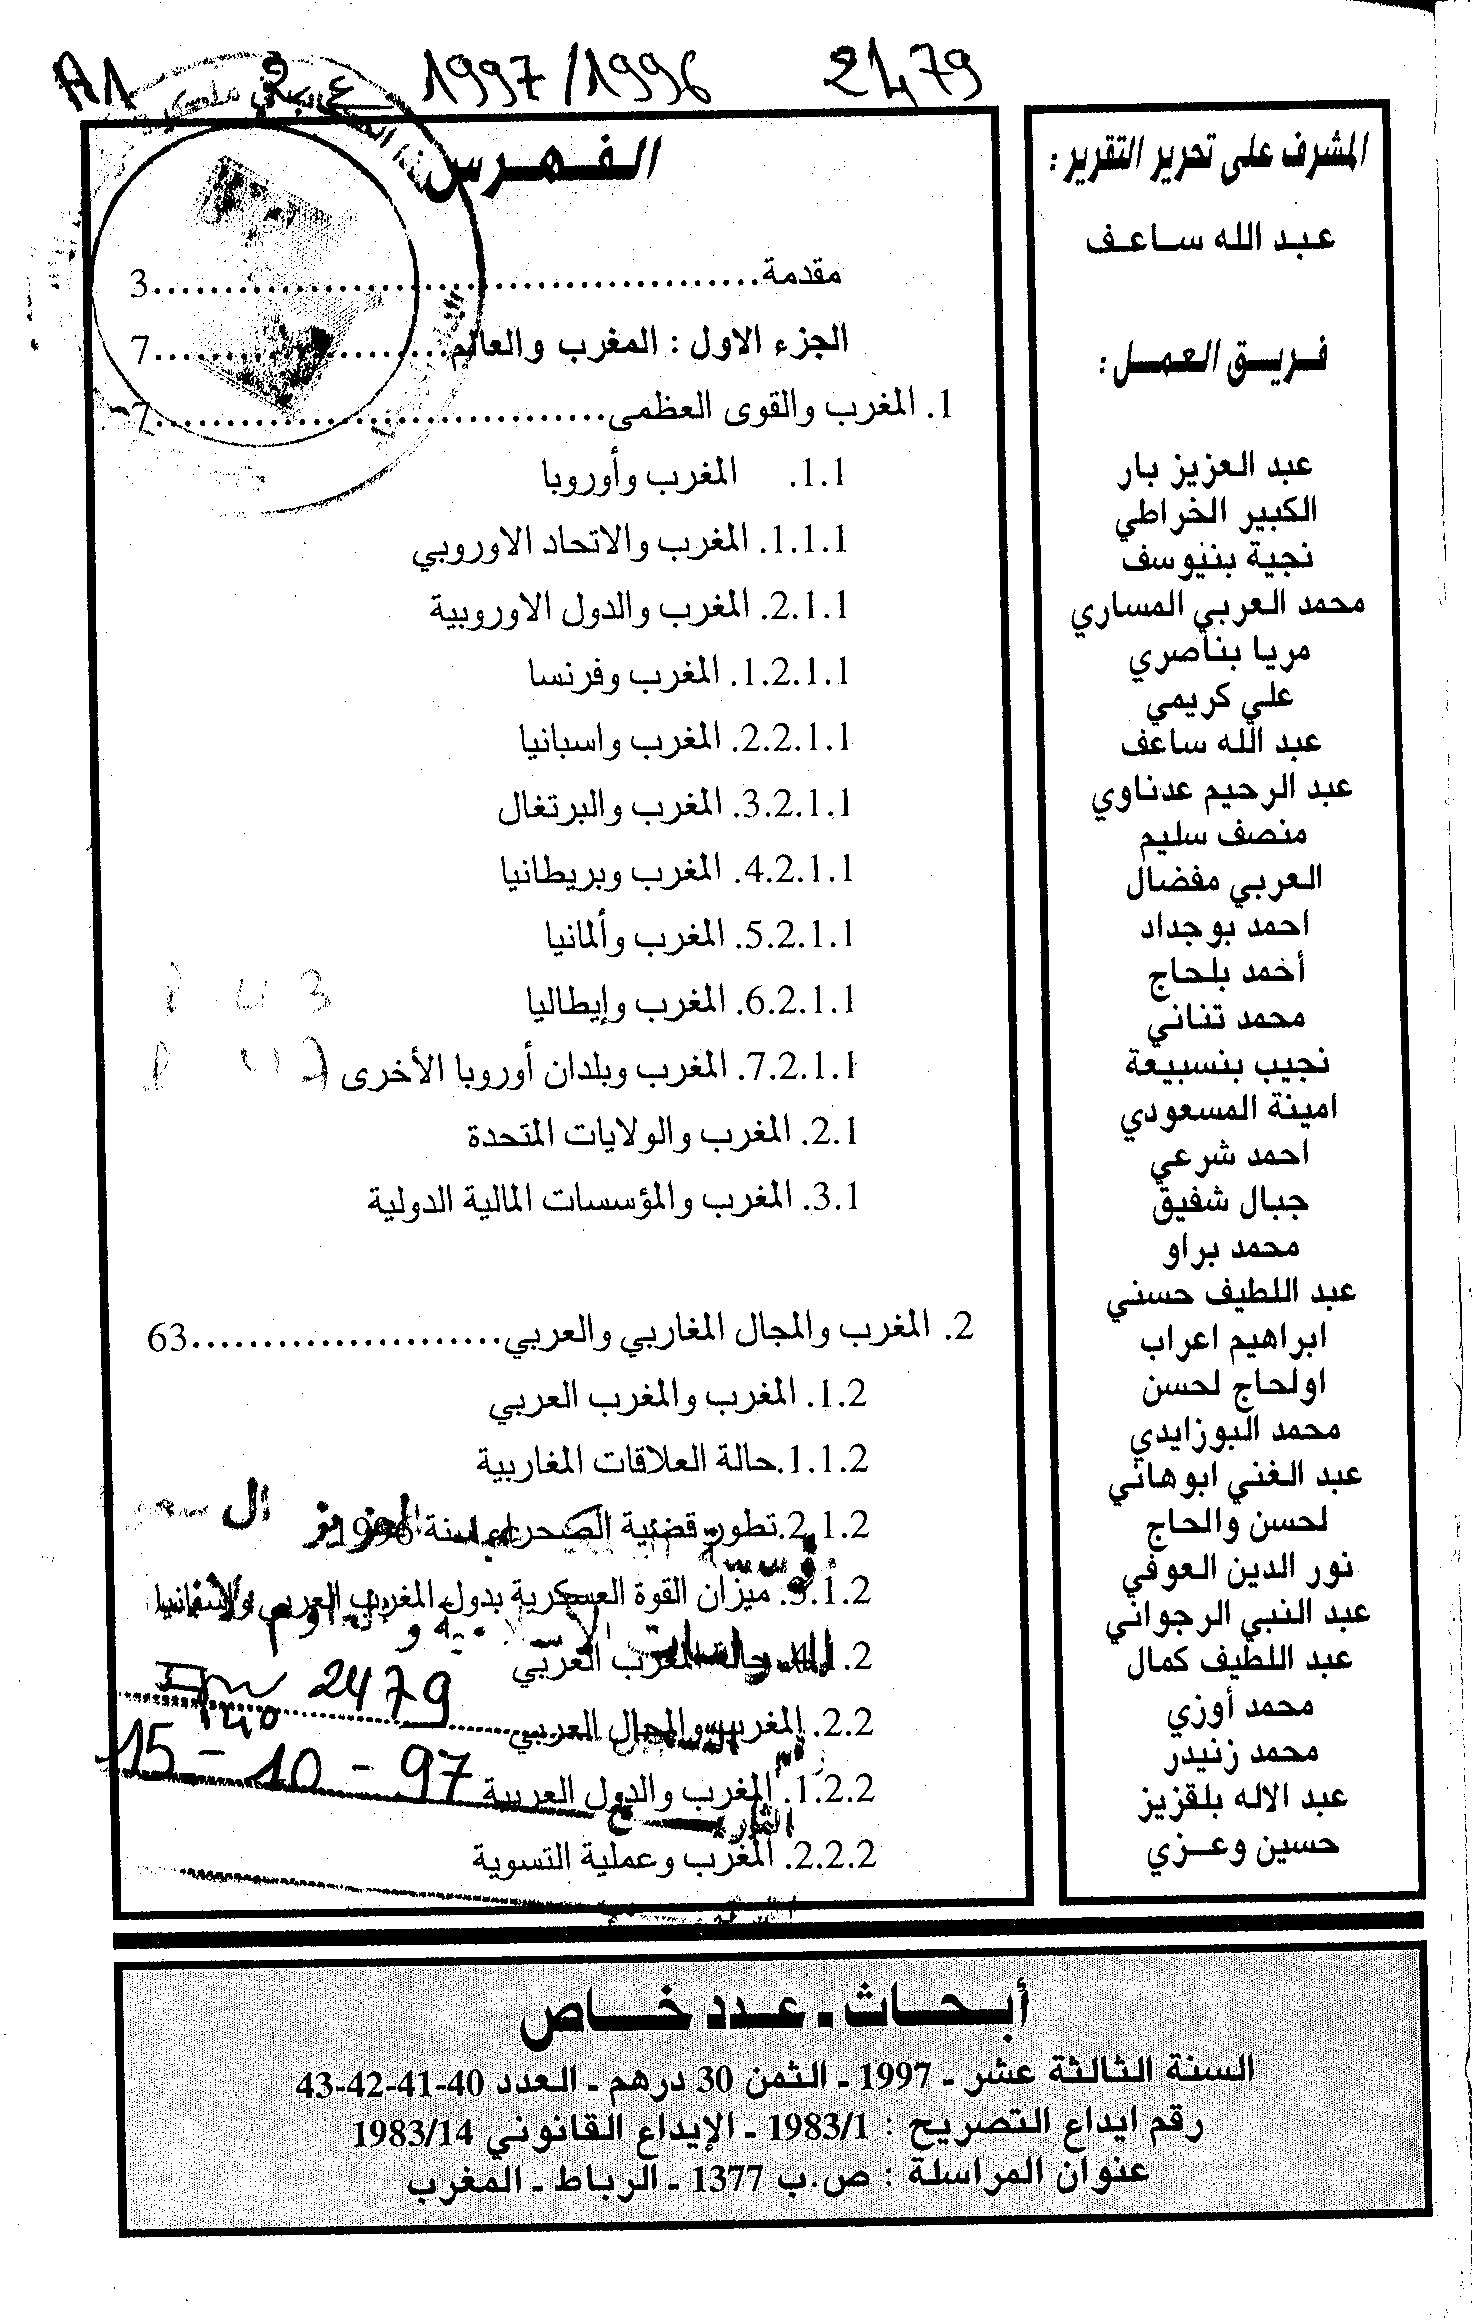 A1
1997/1996
2479
المشرف على تحرير التقرير :
عبد الله ساعف
فريق العمل :
عبد العزيز بار
الكبير الخراطي
نجية بنيوسف
محمد العربي المساري
مريا بناصري
علي كريمي
عبد الله ساعف
عبد الرحيم عدناوي
منصف سليم
العربي مفضال
احمد بوجداد
أخمد بلحاج
محمد تناني
نجيب بنسبيعة
امينة المسعودي
احمد شرعي
جبال شفيق
محمد براو
عبد اللطيف حسني
ابراهيم اعراب
اولحاج لحسن
محمد البوزايدي
عبد الغني ابوهاني
لحسن والحاج
نور الدين العوفي
عبد النبي الرجواني
عبد اللطيف كمال
محمد أوزي
محمد زنيدر
عبد الاله بلقزيز
حسين وعزي
الفهرس
مقدمة...........................................3
الجزء الاول : المغرب والعالم.....................7
1. المغرب والقوى العظمى................................7
1.1. المغرب وأوروبا
1.1.1. المغرب والاتحاد الاوروبي
2.1.1. المغرب والدول الاوروبية
1.2.1.1. المغرب وفرنسا
2.2.1.1. المغرب واسبانيا
3.2.1.1. المغرب والبرتغال
4.2.1.1. المغرب وبريطانيا
5.2.1.1. المغرب وألمانيا
6.2.1.1. المغرب وإيطاليا
7.2.1.1. المغرب وبلدان أوروبا الأخرى
2.1. المغرب والولايات المتحدة
3.1. المغرب والمؤسسات المالية الدولية
2. المغرب والمجال المغاربي والعربي......................63
1.2. المغرب والمغرب العربي
1.1.2.حالة العلاقات المغاربية
2.1.2.تطور قضية الصحراء سنة 1996
3.1.2. ميزان القوة العسكرية بدول المغرب العربي واسبانيا
حالة المغرب العربي
2479
2.2. المغرب والمجال العربي
15-10-97
1.2.2. المغرب والدول العربية
2.2.2. المغرب وعملية التسوية
أبحاث ـ عدد خاص
السنة الثالثة عشر ـ 1997 ـ الثمن 30 درهم ـ العدد 40-41-42-43
رقم ايداع التصريح : 1983/1 ـ الإيداع القانوني 1983/14
عنوان المراسلة : ص.ب 1377 ـ الرباط ـ المغرب